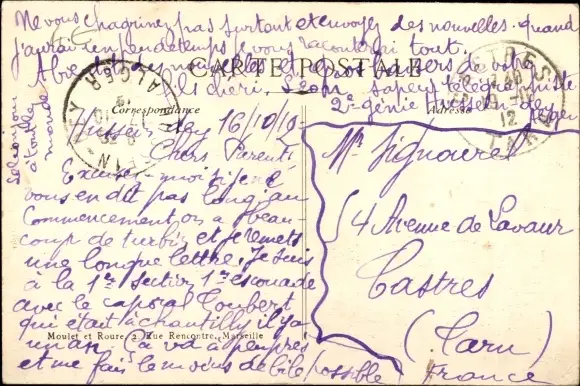 Ne vous chagrinez pas surtout et envoyez des nouvelles. quand
j'aurai un peu de temps je vous raconterai tout.
A vous de vos nouvelles et bons baisers de votre
fils chéri, Léon sapeur télégraphiste
2e génie Hussein-dey
Alger
CARTE POSTALE
Correspondance
Adresse
Hussein dey 16/10/10
Chers Parents,
Excusez-moi si je ne
vous en dit pas long au
commencement, on a beau-
coup de turbin, et je remets
une longue lettre. Je suis
à la 1re section 1re escouade
avec le caporal Coubert
qui était à chantilly il y a
un an. Ça va à peu près
et me fais le moins de bile possible
tout le
monde
Mr Signourel
54 Avenue de Lavaur
Castres
(Tarn)
France
Moulet et Roure, 2, Rue Rencontre, Marseille
ALGER
CASTRES
TARN